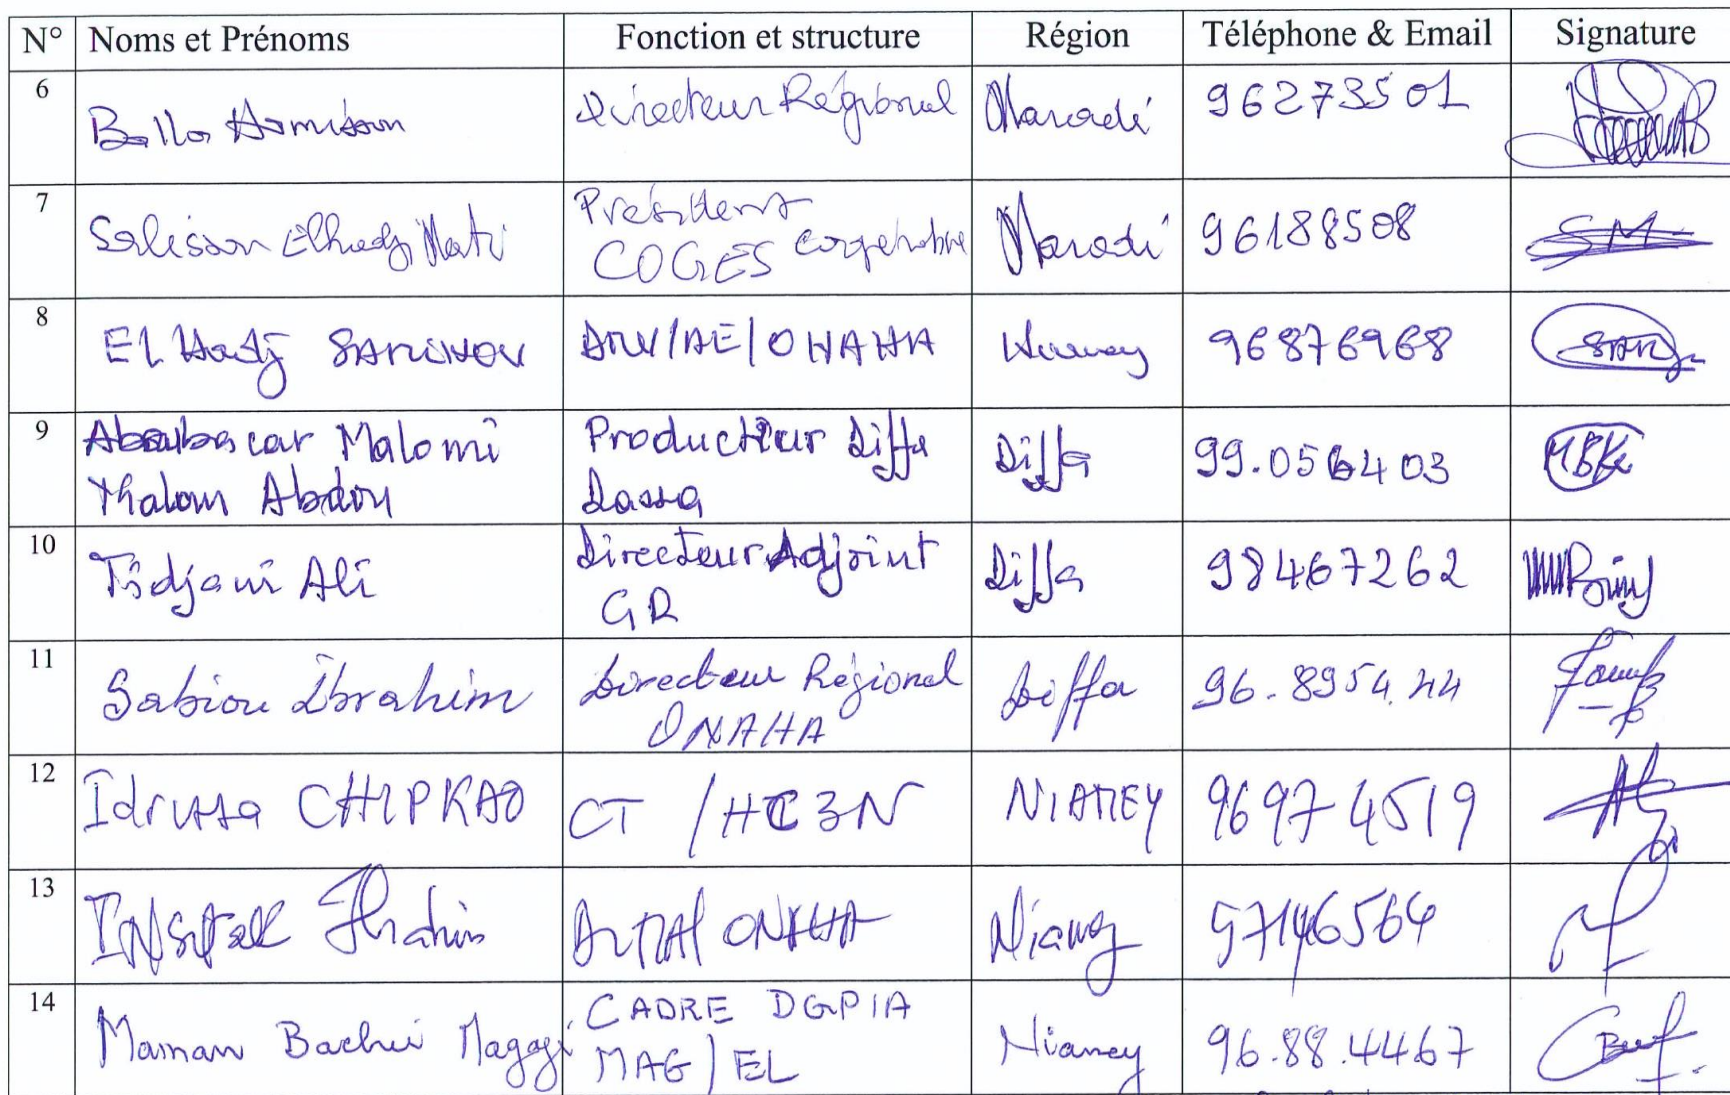 N° Noms et Prénoms Fonction et structure Région Téléphone & Email Signature
6 Ballo Directeur Régional Maradi 96273501
7 Salissou Elhadj Mati Président COGES coopérative Maradi 96188508 SM
8 El Hadj SANOUSSOU /AE/ONAHA Niamey 96876968
9 Aboubacar Malomi Producteur Diffa Diffa 99.056403
Malam Abdou
10 Tidjani Ali Directeur Adjoint Diffa 98467262
GR
11 Sabiou Ibrahim Directeur Régional Diffa 96.8954.44
ONAHA
12 Idrissa CHIPKAO CT /HC3N NIAMEY 96974519
13 Ibrahim ONAHA Niamey
14 Maman Bachir Magagi CADRE DGPIA Niamey 96.88.4467
MAG/EL